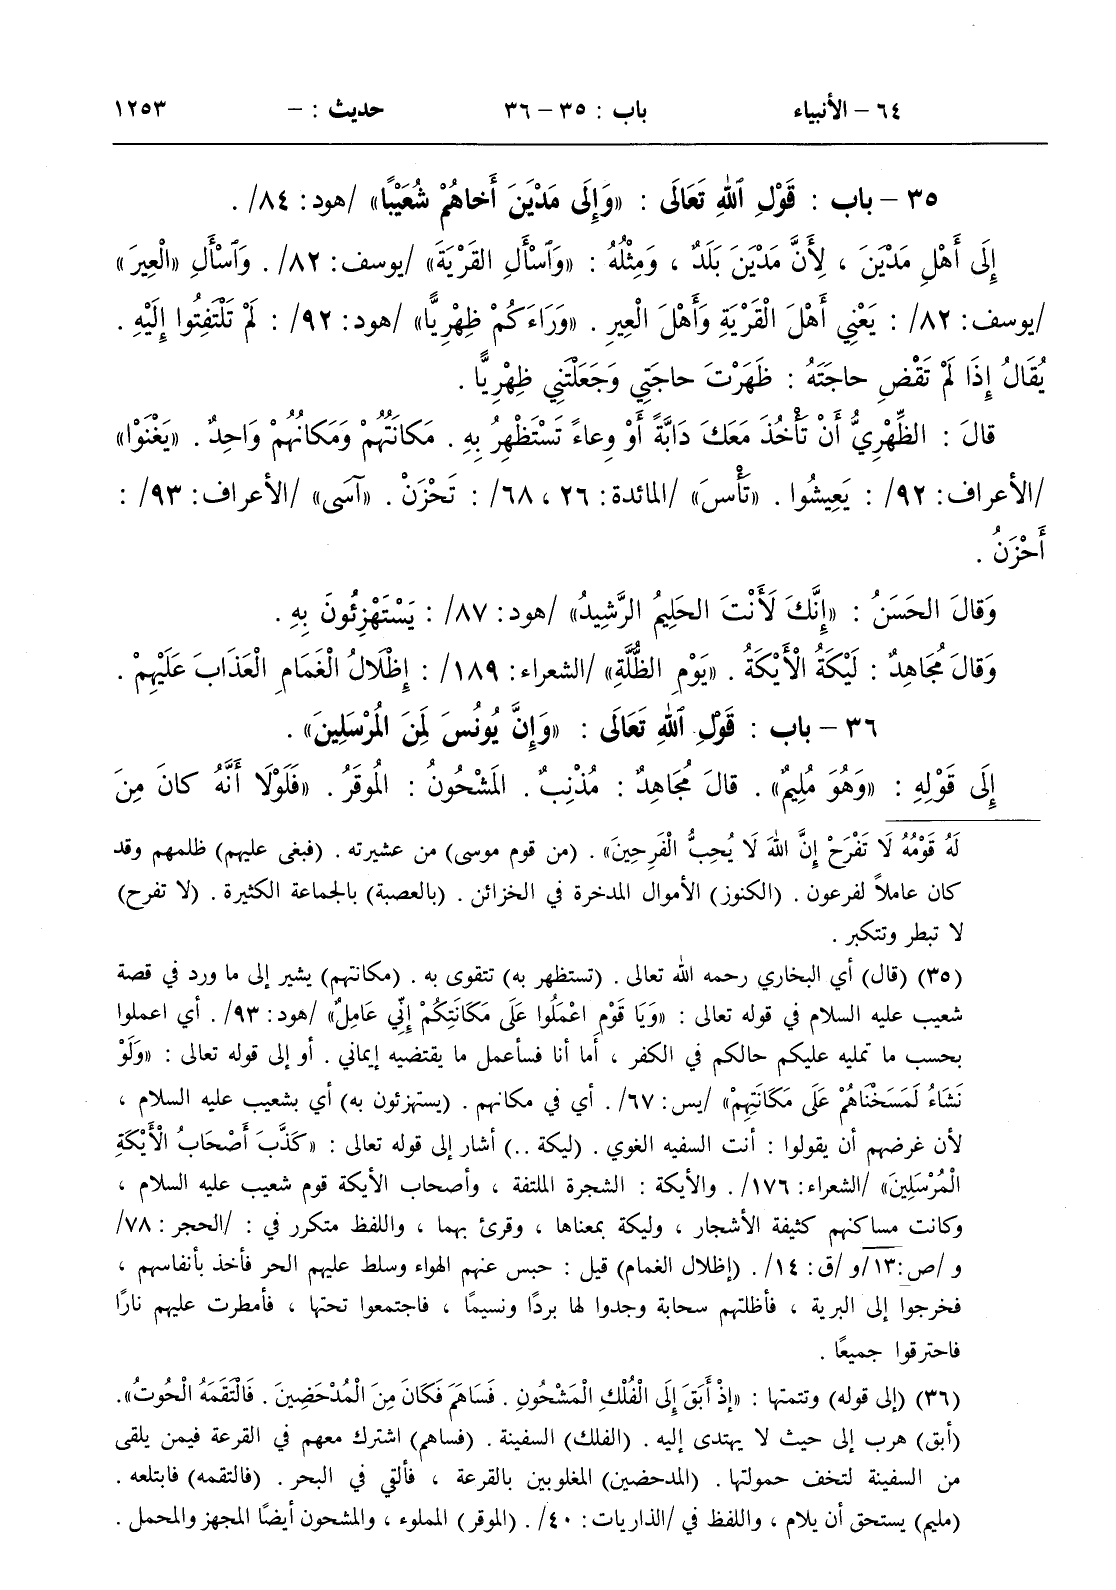 ٦٤ – الأنبياء باب : ٣٥ – ٣٦ حديث : – ١٢٥٣
٣٥ – باب : قَوْلِ ٱللهِ تَعَالَى : «وَإِلَى مَدْيَنَ أَخاهُمْ شُعَيْبًا» /هود: ٨٤/ .
إِلَى أَهْلِ مَدْيَنَ ، لِأَنَّ مَدْيَنَ بَلَدٌ ، وَمِثْلُهُ : «وَٱسْأَلِ القَرْيَةَ» /يوسف: ٨٢/ . وَٱسْأَلِ «الْعِيرَ»
/يوسف: ٨٢/ : يَعْنِي أَهْلَ الْقَرْيَةِ وَأَهْلَ الْعِيرِ . «وَرَاءَكُمْ ظِهْرِيًّا» /هود: ٩٢/ : لَمْ تَلْتَفِتُوا إِلَيْهِ .
يُقَالُ إِذَا لَمْ تَقْضِ حاجَتَهُ : ظَهَرْتَ حاجَتِي وَجَعَلْتَنِي ظِهْرِيًّا .
قالَ : الظِّهْرِيُّ أَنْ تَأْخُذَ مَعَكَ دَابَّةً أَوْ وِعاءً تَسْتَظْهِرُ بِهِ . مَكانَتُهُمْ وَمَكانُهُمْ وَاحِدٌ . «يَغْنَوْا»
/الأعراف: ٩٢/ : يَعِيشُوا . «تَأْسَ» /المائدة: ٢٦ ، ٦٨/ : تَحْزَنْ . «آسَى» /الأعراف: ٩٣/ :
أَحْزَنُ .
وَقالَ الحَسَنُ : «إِنَّكَ لَأَنْتَ الحَلِيمُ الرَّشِيدُ» /هود: ٨٧/ : يَسْتَهْزِئُونَ بِهِ .
وَقالَ مُجَاهِدٌ : لَيْكَةُ الْأَيْكَةُ . «يَوْمِ الظُّلَّةِ» /الشعراء: ١٨٩/ : إِظْلَالُ الْغَمَامِ الْعَذَابَ عَلَيْهِمْ .
٣٦ – باب : قَوْلِ ٱللهِ تَعَالَى : «وَإِنَّ يُونُسَ لَمِنَ الْمُرْسَلِينَ» .
إِلَى قَوْلِهِ : «وَهُوَ مُلِيمٌ» . قالَ مُجَاهِدٌ : مُذْنِبٌ . المَشْحُونُ : المُوقَرُ . «فَلَوْلَا أَنَّهُ كانَ مِنَ
لَهُ قَوْمُهُ لَا تَفْرَحْ إِنَّ اللهَ لَا يُحِبُّ الْفَرِحِينَ» . (من قوم موسى) من عشيرته . (فبغى عليهم) ظلمهم وقد
كان عاملاً لفرعون . (الكنوز) الأموال المدخرة في الخزائن . (بالعصبة) بالجماعة الكثيرة . (لا تفرح)
لا تبطر وتتكبر .
(٣٥) (قال) أي البخاري رحمه الله تعالى . (تستظهر به) تتقوى به . (مكانتهم) يشير إلى ما ورد في قصة
شعيب عليه السلام في قوله تعالى : «وَيَا قَوْمِ اعْمَلُوا عَلَى مَكَانَتِكُمْ إِنِّي عَامِلٌ» /هود: ٩٣/ . أي اعملوا
بحسب ما تمليه عليكم حالكم في الكفر ، أما أنا فسأعمل ما يقتضيه إيماني . أو إلى قوله تعالى : «وَلَوْ
نَشَاءُ لَمَسَخْنَاهُمْ عَلَى مَكَانَتِهِمْ» /يس: ٦٧/ . أي في مكانهم . (يستهزئون به) أي بشعيب عليه السلام ،
لأن غرضهم أن يقولوا : أنت السفيه الغوي . (ليكة ..) أشار إلى قوله تعالى : «كَذَّبَ أَصْحَابُ الْأَيْكَةِ
الْمُرْسَلِينَ» /الشعراء: ١٧٦/ . والأيكة : الشجرة الملتفة ، وأصحاب الأيكة قوم شعيب عليه السلام ،
وكانت مساكنهم كثيفة الأشجار ، وليكة بمعناها ، وقرئ بهما ، واللفظ متكرر في : /الحجر: ٧٨/
و /ص: ١٣/ و /ق: ١٤/ . (إظلال الغمام) قيل : حبس عنهم الهواء وسلط عليهم الحر فأخذ بأنفاسهم ،
فخرجوا إلى البرية ، فأظلتهم سحابة وجدوا لها بردًا ونسيمًا ، فاجتمعوا تحتها ، فأمطرت عليهم نارًا
فاحترقوا جميعًا .
(٣٦) (إلى قوله) وتتمتها : «إِذْ أَبَقَ إِلَى الْفُلْكِ المَشْحُونِ . فَسَاهَمَ فَكَانَ مِنَ الْمُدْحَضِينَ . فَالْتَقَمَهُ الْحُوتُ» .
(أبق) هرب إلى حيث لا يهتدى إليه . (الفلك) السفينة . (فساهم) اشترك معهم في القرعة فيمن يلقى
من السفينة لتخف حمولتها . (المدحضين) المغلوبين بالقرعة ، فألقي في البحر . (فالتقمه) فابتلعه .
(مليم) يستحق أن يلام ، واللفظ في /الذاريات: ٤٠/ . (الموقر) المملوء ، والمشحون أيضًا المجهز والمحمل .